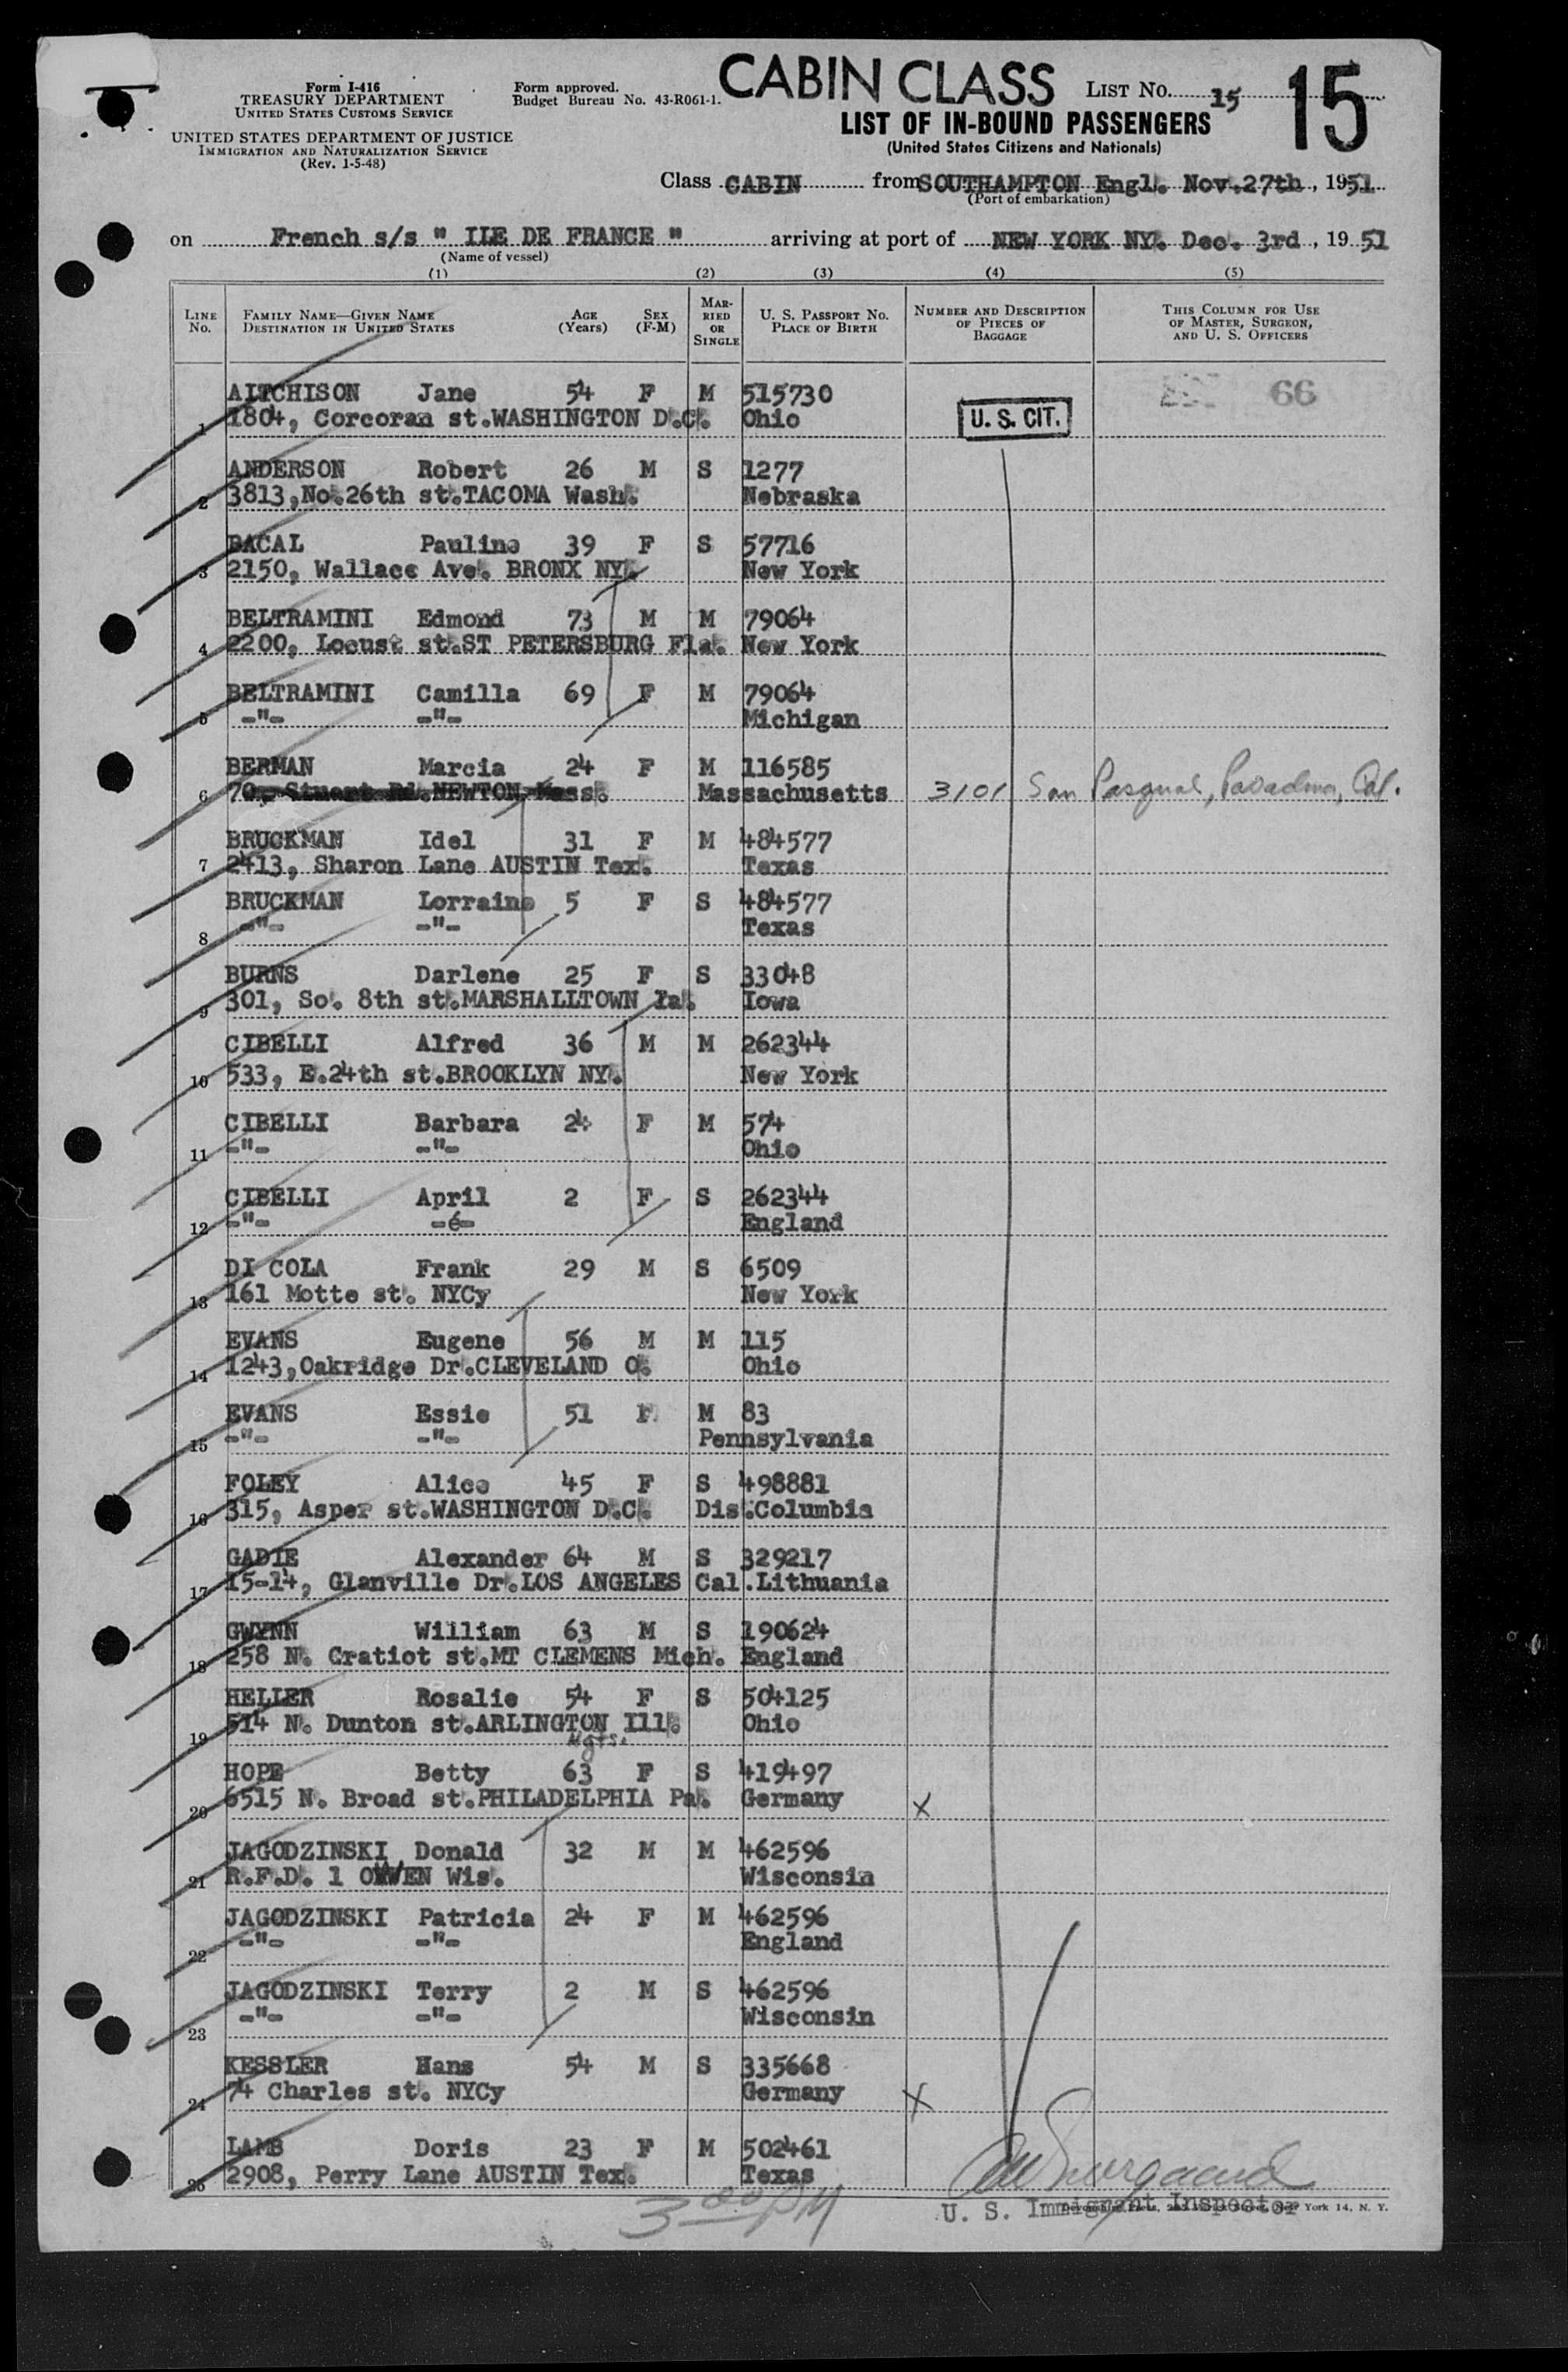 Form I-416
TREASURY DEPARTMENT
UNITED STATES CUSTOMS SERVICE
UNITED STATES DEPARTMENT OF JUSTICE
IMMIGRATION AND NATURALIZATION SERVICE
(Rev. 1-5-48)
Form approved.
Budget Bureau No. 43-R061-1.
CABIN CLASS
LIST NO. 15
15
LIST OF IN-BOUND PASSENGERS
(United States Citizens and Nationals)
Class CABIN from SOUTHAMPTON Engl. Nov.27th, 1951
(Port of embarkation)
on French s/s " ILE DE FRANCE " arriving at port of NEW YORK NY. Dec. 3rd, 1951
(Name of vessel)
(1) (2) (3) (4) (5)
LINE No. FAMILY NAME—GIVEN NAME DESTINATION IN UNITED STATES AGE (Years) SEX (F-M) MARRIED OR SINGLE U. S. PASSPORT NO. PLACE OF BIRTH NUMBER AND DESCRIPTION OF PIECES OF BAGGAGE THIS COLUMN FOR USE OF MASTER, SURGEON, AND U. S. OFFICERS
AITCHISON Jane 54 F M 515730 66
1 1804, Corcoran st.WASHINGTON D.C. Ohio U. S. CIT.
ANDERSON Robert 26 M S 1277
2 3813,No.26th st.TACOMA Wash. Nebraska
BACAL Pauline 39 F S 57716
3 2150, Wallace Ave. BRONX NY. New York
BELTRAMINI Edmond 73 M M 79064
4 2200, Locust st.ST PETERSBURG Fla. New York
BELTRAMINI Camilla 69 F M 79064
5 -"- -"- Michigan
BERMAN Marcia 24 F M 116585
6 70, Stuart Rd.NEWTON Mass. Massachusetts 3101 San Pasqual, Pasadena, Cal.
BRUCKMAN Idel 31 F M 484577
7 2413, Sharon Lane AUSTIN Tex. Texas
BRUCKMAN Lorraine 5 F S 484577
8 -"- -"- Texas
BURNS Darlene 25 F S 33048
9 301, So. 8th st.MARSHALLTOWN Ia. Iowa
CIBELLI Alfred 36 M M 262344
10 533, E.24th st.BROOKLYN NY. New York
CIBELLI Barbara 24 F M 574
11 -"- -"- Ohio
CIBELLI April 2 F S 262344
12 -"- -é- England
DI COLA Frank 29 M S 6509
13 161 Motte st. NYCy New York
EVANS Eugene 56 M M 115
14 1243,Oakridge Dr.CLEVELAND O. Ohio
EVANS Essie 51 F M 83
15 -"- -"- Pennsylvania
FOLEY Alice 45 F S 498881
16 315, Asper st.WASHINGTON D.C. Dis.Columbia
GADIE Alexander 64 M S 329217
17 15-14, Glanville Dr.LOS ANGELES Cal.Lithuania
GWYNN William 63 M S 190624
18 258 N. Cratiot st.MT CLEMENS Mich. England
HELLER Rosalie 54 F S 504125
19 514 N. Dunton st.ARLINGTON Ill. Ohio
Hgts.
HOPE Betty 63 F S 419497
20 6515 N. Broad st.PHILADELPHIA Pa. Germany X
JAGODZINSKI Donald 32 M M 462596
21 R.F.D. 1 OWEN Wis. Wisconsin
JAGODZINSKI Patricia 24 F M 462596
22 -"- -"- England
JAGODZINSKI Terry 2 M S 462596
23 -"- -"- Wisconsin
KESSLER Hans 54 M S 335668
24 74 Charles st. NYCy Germany X
LAMB Doris 23 F M 502461
25 2908, Perry Lane AUSTIN Tex. Texas
3 00 PM
U. S. Immigrant Inspector
York 14, N. Y.